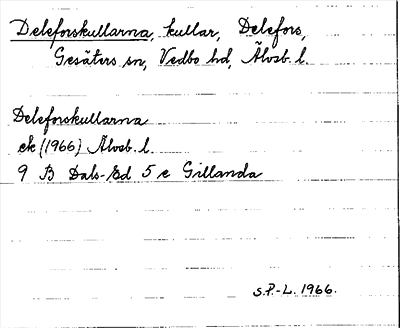 Deleforskullarna, kullar, Delefors,
Gesäters sn, Vedbo hd, Älvsb. l.
Deleforskullarna
ek (1966) Älvsb. l.
9 B Dals-Ed 5 e Gillanda
S.P.-L. 1966.